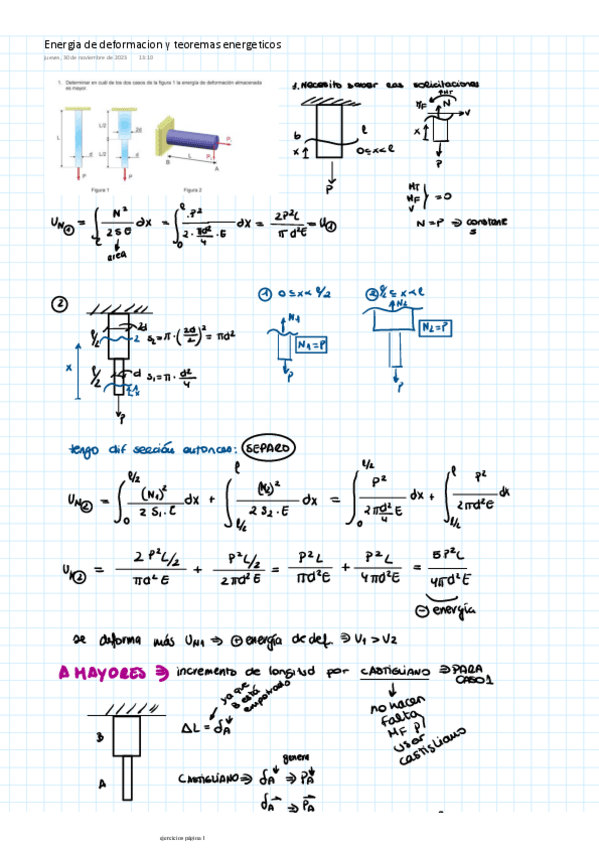 Energia de deformacion y teoremas energeticos
jueves, 30 de noviembre de 2023 13:10
1. Determinar en cuál de los dos casos de la figura 1 la energía de deformación almacenada
es mayor.
L
d
P
L/2
2d
L/2
d
P
Figura 1
B
L
A
P₁
P₂
Figura 2
1. Necesito saber las solicitaciones
b
l
x
0≤x<l
P
MT
MF
N
V
x
P
MT
MF
V
} = 0
N = P ⇒ constante
U_N① = ∫₀^l N²/(2SE) dx = ∫₀^l P²/(2·πd²/4·E) dx = 2P²L/(πd²E) = U①
area
②
l/2
2d
2
S₂ = π·(2d/2)² = πd²
x
l/2
d
S₁ = π·d²/4
P
① 0≤x<l/2
N₁
N₁=P
P
② l/2≤x<l
N₂
N₂=P
P
tengo dif sección entonces: SEPARO
U_N② = ∫₀^{l/2} (N₁)²/(2S₁·E) dx + ∫_{l/2}^l (N₂)²/(2S₂·E) dx = ∫₀^{l/2} P²/(2πd²/4 E) dx + ∫_{l/2}^l P²/(2πd²E) dx
U_N② = 2P²L/2/(πd²E) + P²L/2/(2πd²E) = P²L/(πd²E) + P²L/(4πd²E) = 5P²L/(4πd²E)
⊖ energía
se deforma más U_N1 ⇒ ⊕ energía de def. ⇒ U₁ > U₂
A MAYORES ⇒ incremento de longitud por CASTIGLIANO ⇒ PARA CASO 1
ya que B está empotrado
no hacen falta MF p/ usar castigliano
B
A
ΔL = δ_A
genera
CASTIGLIANO ⇒ δ_A↓ ⇒ P_A↓
δ_A→ ⇒ P_A→
ejercicios página 1